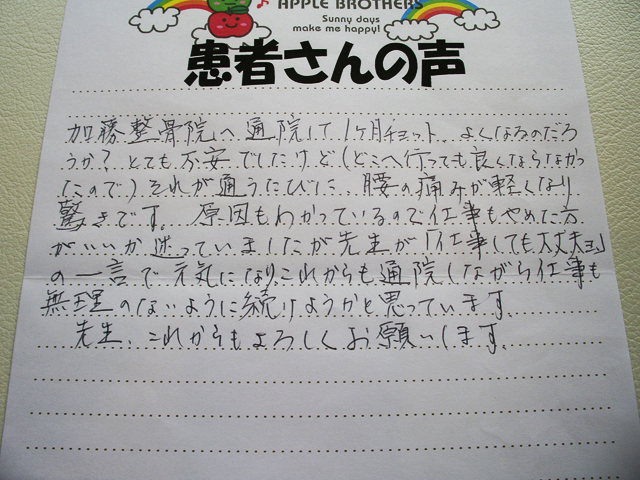 APPLE BROTHERS
Sunny days
make me happy!
患者さんの声
加藤整骨院へ通院して1ヶ月チョット、よくなるのだろ
うか？とても不安でしたけど(どこへ行っても良くならなかっ
たので)それが通うたびに、腰の痛みが軽くなり
驚きです。原因もわかっているので仕事もやめた方
がいいか迷っていましたが先生が「仕事しても大丈夫ョ」
の一言で元気になりこれからも通院しながら仕事も
無理のないように続けようかと思っています。
先生、これからもよろしくお願いします。